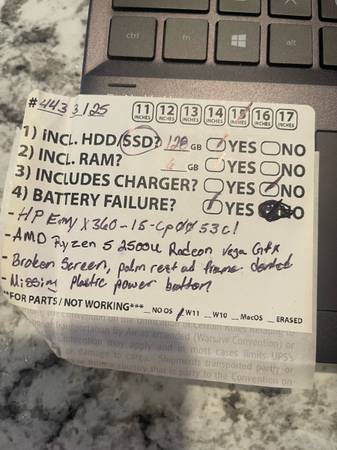 ctrl fn alt
#4433125 11 INCHES 12 INCHES 13 INCHES 14 INCHES 15 INCHES 16 INCHES 17 INCHES
1) INCL. HDD/SSD? 128 GB YES NO
2) INCL. RAM? GB YES NO
3) INCLUDES CHARGER? YES NO
4) BATTERY FAILURE? YES NO
- HP Envy X360-15-cp0053cl
- AMD Ryzen 5 2500U Radeon Vega Gfx
- Broken Screen, palm rest and frame dented
- Missing plastic power button
**FOR PARTS / NOT WORKING*** _ NO OS _ W11 _ W10 _ MacOS _ ERASED